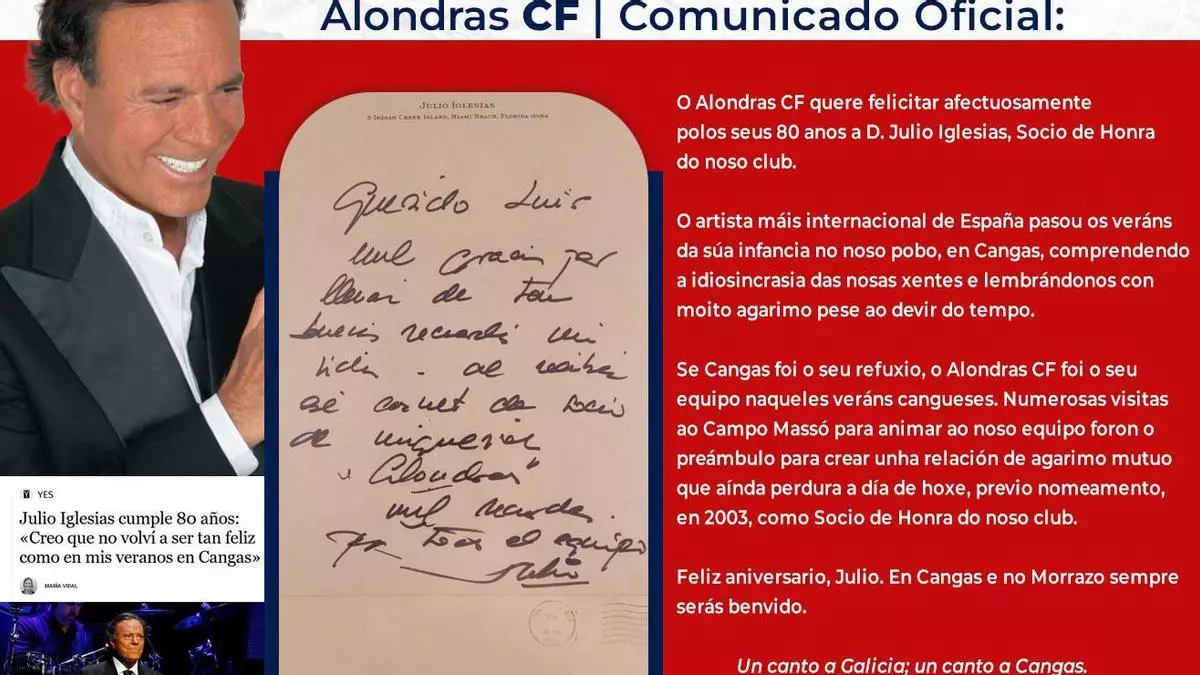 Alondras CF | Comunicado Oficial:
JULIO IGLESIAS
INDIAN CREEK ISLAND, MIAMI BEACH, FLORIDA
Querido Luis
mil gracias por
llenar de tan
buenos recuerdos mi
vida - al recibir
ese carnet de socio
de mi
"Alondras"
mil recuerdos
todo el equipo
Julio
O Alondras CF quere felicitar afectuosamente
polos seus 80 anos a D. Julio Iglesias, Socio de Honra
do noso club.
O artista máis internacional de España pasou os veráns
da súa infancia no noso pobo, en Cangas, comprendendo
a idiosincrasia das nosas xentes e lembrándonos con
moito agarimo pese ao devir do tempo.
Se Cangas foi o seu refuxio, o Alondras CF foi o seu
equipo naqueles veráns cangueses. Numerosas visitas
ao Campo Massó para animar ao noso equipo foron o
preámbulo para crear unha relación de agarimo mutuo
que aínda perdura a día de hoxe, previo nomeamento,
en 2003, como Socio de Honra do noso club.
Feliz aniversario, Julio. En Cangas e no Morrazo sempre
serás benvido.
Un canto a Galicia; un canto a Cangas.
Y YES
Julio Iglesias cumple 80 años:
«Creo que no volví a ser tan feliz
como en mis veranos en Cangas»
MARÍA VIDAL